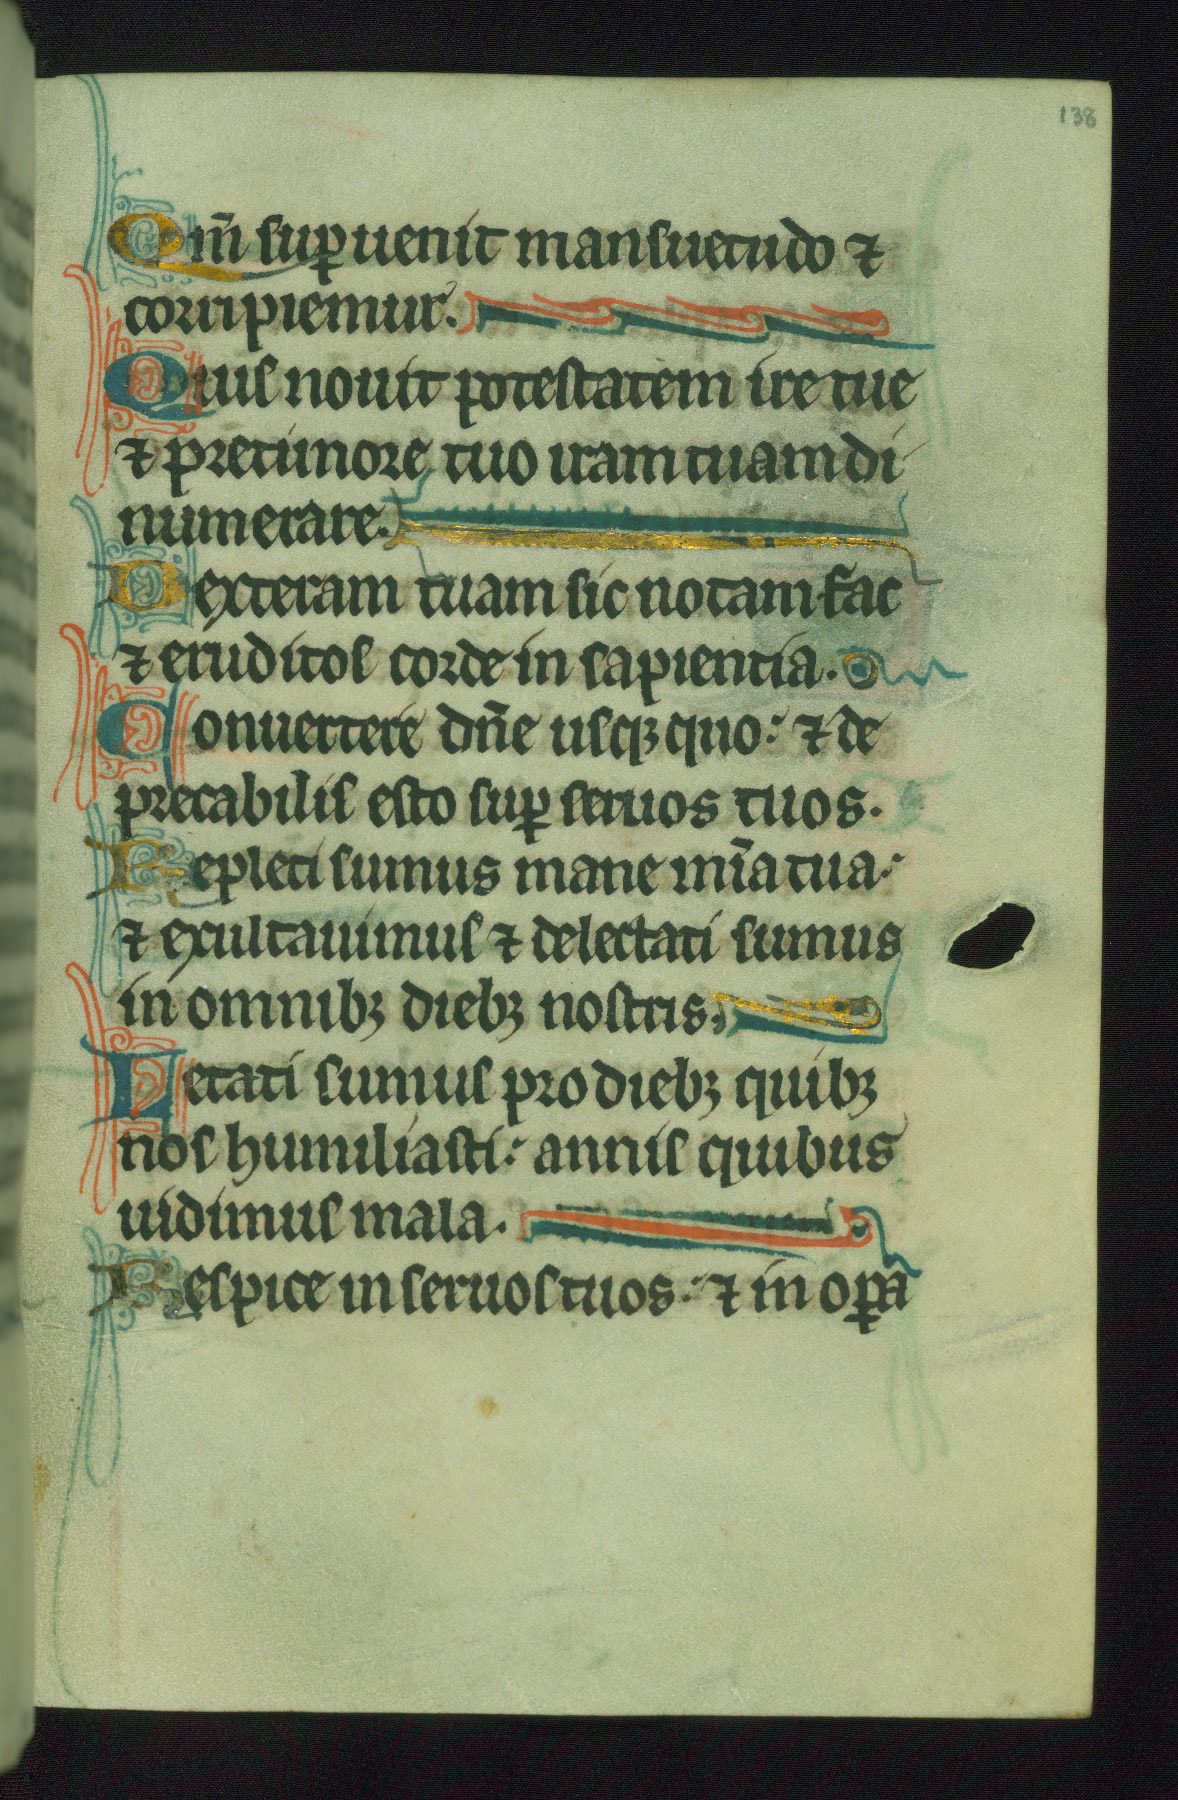 138
Qm̄ sup̲uenit mansuetudo ⁊
corripiemur.
Quis nouit potestatem ire tue
⁊ pretimore tuo iram tuam di
numerare.
Dexteram tuam sic notam fac
⁊ eruditos corde in sapientia.
Conuertere dn̄e usqꝫ quo: ⁊ de
precabilis esto suꝑ seruos tuos.
Repleti sumus mane mīa tua:
⁊ exultauimus ⁊ delectati sumus
in omnibꝫ diebꝫ nostris.
Letati sumus pro diebꝫ quibꝫ
nos humiliasti: annis quibus
uidimus mala.
Respice in seruos tuos: ⁊ in oꝑa